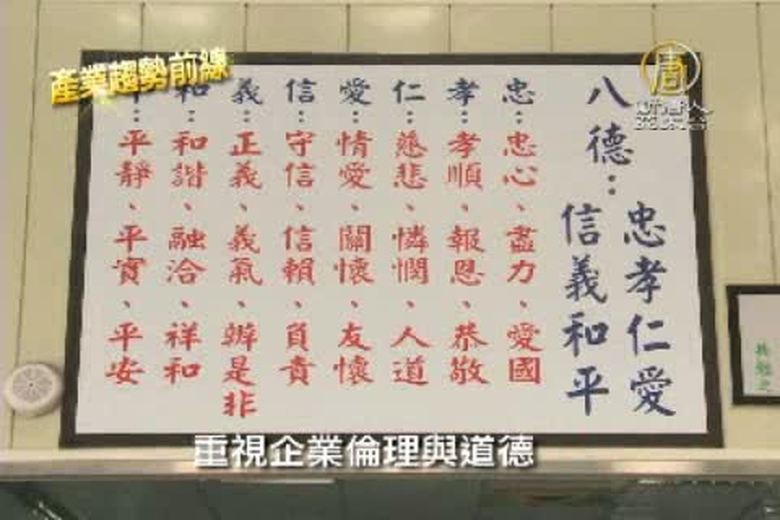 產業趨勢前線
新唐人
八德：忠孝仁愛
信義和平
忠：忠心、盡力、愛國
孝：孝順、報恩、恭敬
仁：慈悲、憐憫、人道
愛：情愛、關懷、友懷
信：守信、信賴、負責
義：正義、義氣、辦是非
和：和諧、融洽、祥和
平：平靜、平實、平安
重視企業倫理與道德